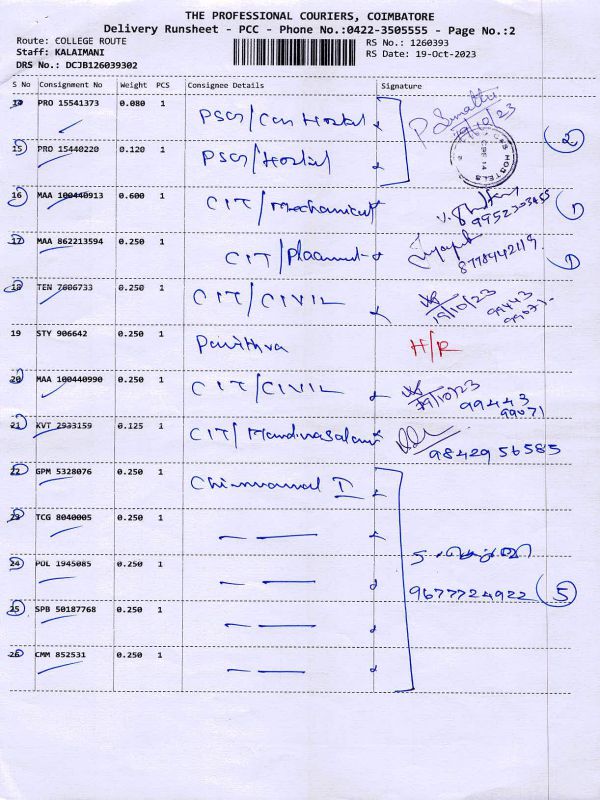 THE PROFESSIONAL COURIERS, COIMBATORE
Delivery Runsheet - PCC - Phone No.:0422-3505555 - Page No.:2
Route: COLLEGE ROUTE
Staff: KALAIMANI
DRS No.: DCJB126039302
RS No.: 1260393
RS Date: 19-Oct-2023
S No Consignment No Weight PCS Consignee Details Signature
14 PRO 15541373 0.080 1 PSG/
19/10/23
2
15 PRO 15440220 0.120 1 PSG/Hostel
16 MAA 100440913 0.600 1 CIT/Mechanical
1
17 MAA 862213594 0.250 1 CIT/
8778442119
1
18 TEN 7606733 0.250 1 CIT/CIVIL 19/10/23 99443
99071
19 STY 906642 0.250 1 Pavithra H/R
20 MAA 100440990 0.250 1 CIT/CIVIL 19/10/23 99443
99071
21 KVT 2933159 0.125 1 CIT/
9842956585
22 GPM 5328076 0.250 1 Chinnamal I
23 TCG 8040005 0.250 1
24 POL 1945085 0.250 1
9677724922 5
25 SPB 50187768 0.250 1
26 CMM 852531 0.250 1